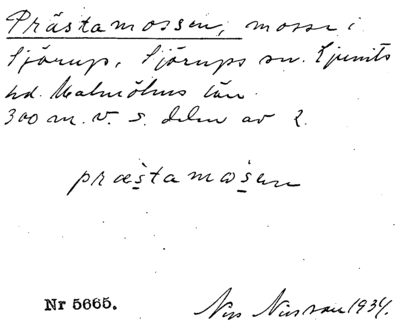 Prästamossen, mosse i
Sjörup, Sjörups sn. Ljunits
hd. Malmöhus län.
300 m. v. s. delen av 2.
præstamosen
Nr 5665.
Nils Nilsson 1934.